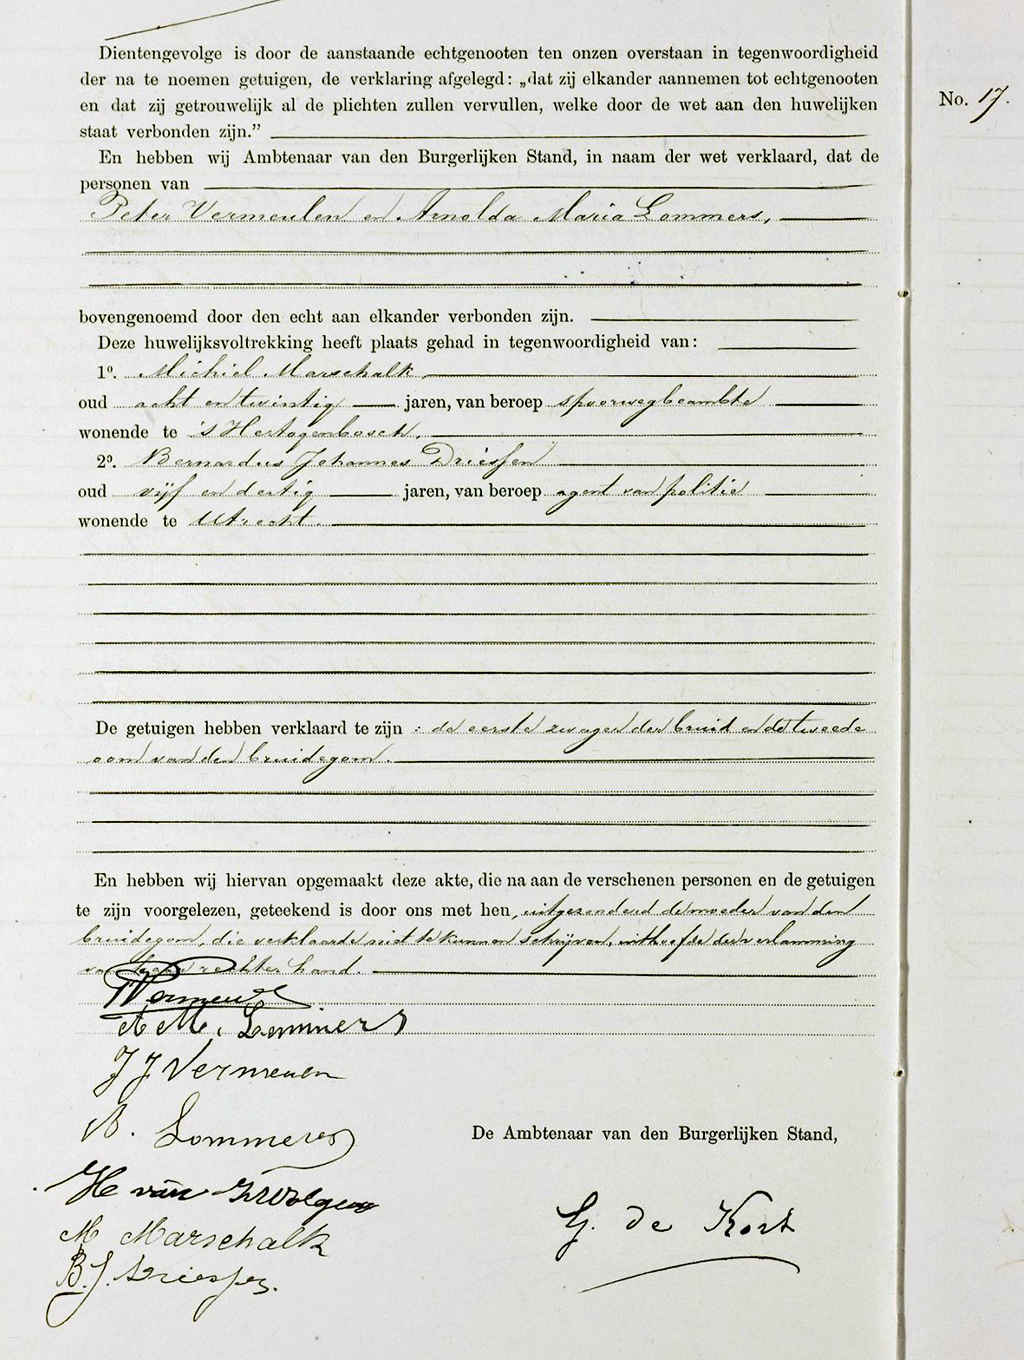 Dientengevolge is door de aanstaande echtgenooten ten onzen overstaan in tegenwoordigheid
der na te noemen getuigen, de verklaring afgelegd: „dat zij elkander aannemen tot echtgenooten
en dat zij getrouwelijk al de plichten zullen vervullen, welke door de wet aan den huwelijken
staat verbonden zijn.”
No. 17.
En hebben wij Ambtenaar van den Burgerlijken Stand, in naam der wet verklaard, dat de
personen van
Peter Vermeulen en Arnolda Maria Lommers,
bovengenoemd door den echt aan elkander verbonden zijn.
Deze huwelijksvoltrekking heeft plaats gehad in tegenwoordigheid van:
1o. Michiel Marschalk
oud acht en twintig jaren, van beroep spoorwegbeambte
wonende te 's Hertogenbosch,
2o. Bernardus Johannes Driessen
oud vijf en dertig jaren, van beroep agent van politie
wonende te Utrecht.
De getuigen hebben verklaard te zijn : de eerste zwager der bruid en de tweede
oom van den bruidegom.
En hebben wij hiervan opgemaakt deze akte, die na aan de verschenen personen en de getuigen
te zijn voorgelezen, geteekend is door ons met hen, uitgezonderd de moeder van den
bruidegom, die verklaarde niet te kunnen schrijven, uithoofde der verlamming
van hare rechter hand.
PVermeulen
A M. Lommers
J J Vermeulen
A. Lommers
De Ambtenaar van den Burgerlijken Stand,
H van
M Marschalk
G. de Kort
B. J. Driessen.